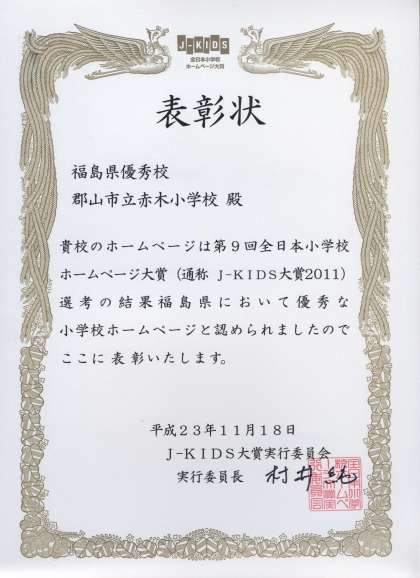 J-KIDS
全日本小学校
ホームページ大賞
表彰状
福島県優秀校
郡山市立赤木小学校 殿
貴校のホームページは第9回全日本小学校
ホームページ大賞(通称 J-KIDS大賞2011)
選考の結果福島県において優秀な
小学校ホームページと認められましたので
ここに表彰いたします。
平成23年11月18日
J-KIDS大賞実行委員会
実行委員長 村井純